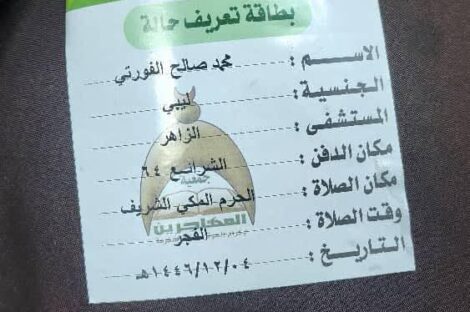 بطاقة تعريف حالة
الاســـم : محمد صالح الفورتي
الجنسية : ليبي
المستشفى : الزاهر
مكان الدفن : الشرائع ٦٤
مكان الصلاة : الحرم المكي الشريف
وقت الصلاة : الفجر
التاريخ : ١٤٤٦/١٢/٠٤هـ
جمعية